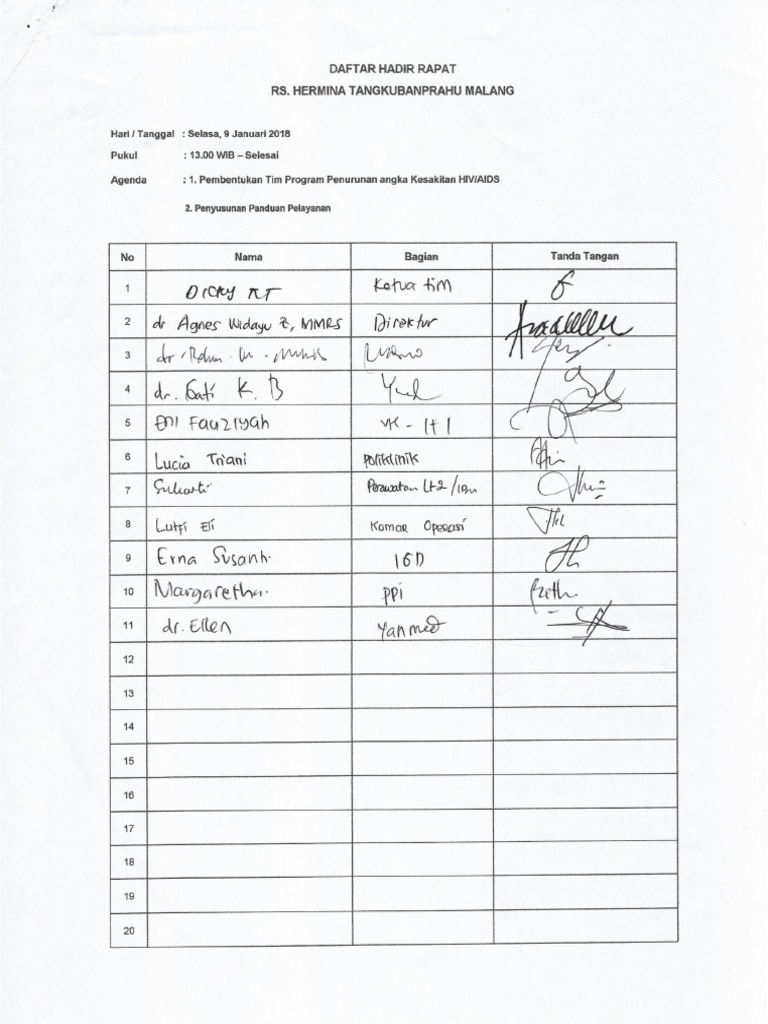 DAFTAR HADIR RAPAT
RS. HERMINA TANGKUBANPRAHU MALANG
Hari / Tanggal : Selasa, 9 Januari 2018
Pukul : 13.00 WIB – Selesai
Agenda : 1. Pembentukan Tim Program Penurunan angka Kesakitan HIV/AIDS
2. Penyusunan Panduan Pelayanan
No Nama Bagian Tanda Tangan
1 DICKY RT Ketua tim
2 dr Agnes Widayu E, MMRS Direktur
3 dr
4 dr. Gati K. B
5 Eni Fauziyah VK - lt 1
6 Lucia Triani Poliklinik
7 Sukarti Perawatan Lt 2 /
8 Lutfi Eli Kamar Operasi
9 Erna Susanti IGD
10 Margaretha. PPI
11 dr. Ellen Yanmed
12
13
14
15
16
17
18
19
20